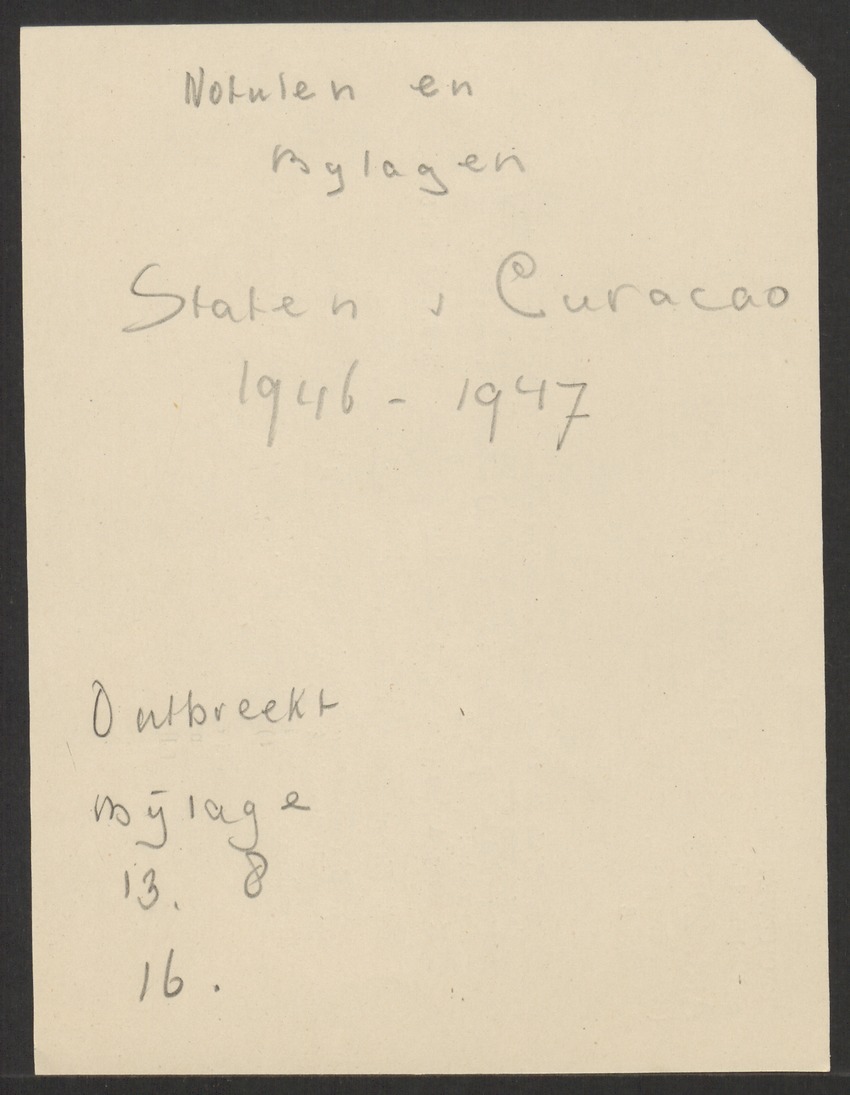 Notulen en
Bylagen
Staten v Curacao
1946 - 1947
Ontbreekt
Bÿlage
13. 8
16.